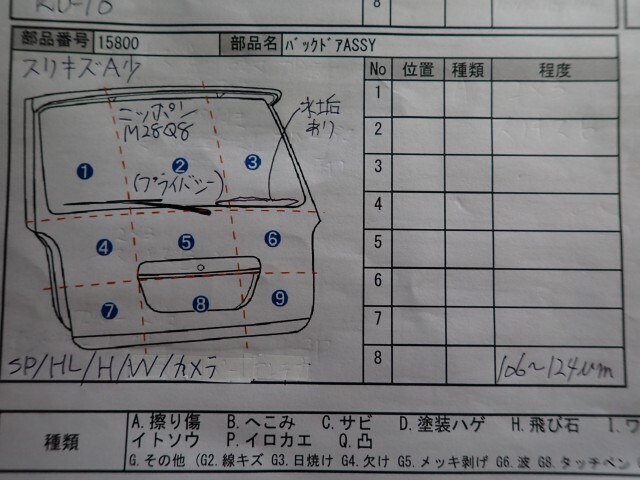 KD-10
8
部品番号 15800 部品名 ﾊﾞｯｸﾄﾞｱASSY
スリキズA少
No 位置 種類 程度
ニッポリ
M28Q8
(プライバシー)
水垢
あり
1
2
3
4
5
6
7
8
9
SP/HL/H/W/カメラ
1
2
3
4
5
6
7
8 106~124μm
種類
A.擦り傷 B.へこみ C.サビ D.塗装ハゲ H.飛び石 I.ワ
イトソウ P.イロカエ Q.凸
G.その他 (G2.線キズ G3.日焼け G4.欠け G5.メッキ剥げ G6.波 G8.タッチペン